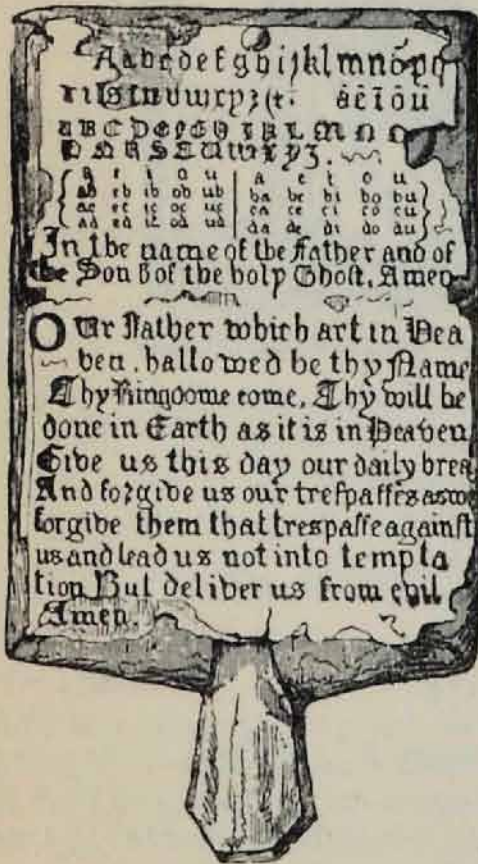 Aabcdefghijklmnopq
rſsſtuvwxyz &. ā ē ī ō ū
ABCDEFGHIKLMNO
PQRSTUWXYZ.
a e i o u | a e i o u
ab eb ib ob ub | ba be bi bo bu
ac ec ic oc uc | ca ce ci co cu
ad ed id od ud | da de di do du
In the name of the Father and of
the Son & of the holy Ghoſt, Amen
Our Father which art in Hea
ven, hallowed be thy Name
Thy Kingdome come, Thy will be
done in Earth as it is in Heaven
Give us this day our daily brea
And forgive us our treſpaſſes as we
forgive them that treſpaſſe againſt
us and lead us not into tempta
tion But deliver us from evil
Amen.